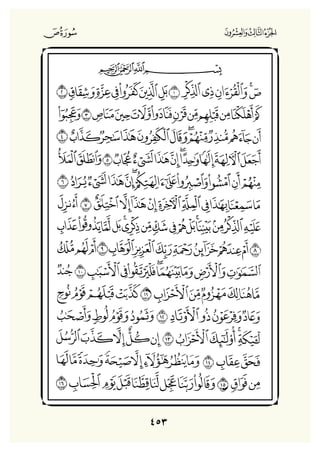 سُورَةُ صٓ
الجُزْءُ الثَّالِثُ وَالعِشْرُونَ
بِسْمِ ٱللَّهِ ٱلرَّحْمَٰنِ ٱلرَّحِيمِ
صٓۚ وَٱلْقُرْءَانِ ذِى ٱلذِّكْرِ ١ بَلِ ٱلَّذِينَ كَفَرُوا۟ فِى عِزَّةٍ وَشِقَاقٍ ٢
كَمْ أَهْلَكْنَا مِن قَبْلِهِم مِّن قَرْنٍ فَنَادَوا۟ وَّلَاتَ حِينَ مَنَاصٍ ٣ وَعَجِبُوٓا۟
أَن جَآءَهُم مُّنذِرٌ مِّنْهُمْۖ وَقَالَ ٱلْكَٰفِرُونَ هَٰذَا سَٰحِرٌ كَذَّابٌ ٤
أَجَعَلَ ٱلْءَالِهَةَ إِلَٰهًا وَٰحِدًاۖ إِنَّ هَٰذَا لَشَىْءٌ عُجَابٌ ٥ وَٱنطَلَقَ ٱلْمَلَأُ
مِنْهُمْ أَنِ ٱمْشُوا۟ وَٱصْبِرُوا۟ عَلَىٰٓ ءَالِهَتِكُمْۖ إِنَّ هَٰذَا لَشَىْءٌ يُرَادُ ٦
مَا سَمِعْنَا بِهَٰذَا فِى ٱلْمِلَّةِ ٱلْءَاخِرَةِ إِنْ هَٰذَآ إِلَّا ٱخْتِلَٰقٌ ٧ أَءُنزِلَ
عَلَيْهِ ٱلذِّكْرُ مِنۢ بَيْنِنَاۚ بَلْ هُمْ فِى شَكٍّ مِّن ذِكْرِىۖ بَل لَّمَّا يَذُوقُوا۟ عَذَابِ
٨ أَمْ عِندَهُمْ خَزَآئِنُ رَحْمَةِ رَبِّكَ ٱلْعَزِيزِ ٱلْوَهَّابِ ٩ أَمْ لَهُم مُّلْكُ
ٱلسَّمَٰوَٰتِ وَٱلْأَرْضِ وَمَا بَيْنَهُمَاۖ فَلْيَرْتَقُوا۟ فِى ٱلْأَسْبَٰبِ ١٠ جُندٌ
مَّا هُنَالِكَ مَهْزُومٌ مِّنَ ٱلْأَحْزَابِ ١١ كَذَّبَتْ قَبْلَهُمْ قَوْمُ نُوحٍ
وَعَادٌ وَفِرْعَوْنُ ذُو ٱلْأَوْتَادِ ١٢ وَثَمُودُ وَقَوْمُ لُوطٍ وَأَصْحَٰبُ
لْـَٔيْكَةِۚ أُو۟لَٰٓئِكَ ٱلْأَحْزَابُ ١٣ إِن كُلٌّ إِلَّا كَذَّبَ ٱلرُّسُلَ
فَحَقَّ عِقَابِ ١٤ وَمَا يَنظُرُ هَٰٓؤُلَآءِ إِلَّا صَيْحَةً وَٰحِدَةً مَّا لَهَا
مِن فَوَاقٍ ١٥ وَقَالُوا۟ رَبَّنَا عَجِّل لَّنَا قِطَّنَا قَبْلَ يَوْمِ ٱلْحِسَابِ ١٦
٤٥٣